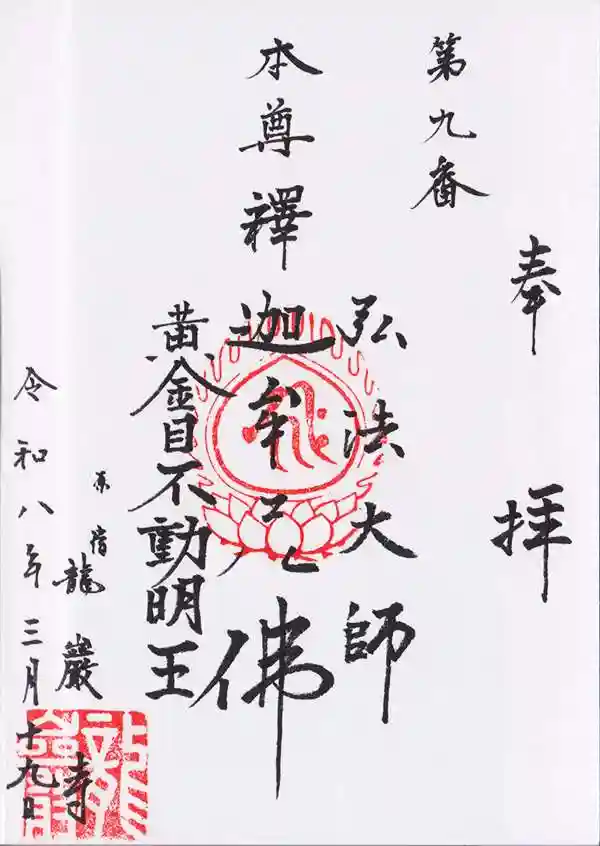 奉拝
第九番
弘法大師
本尊釋迦牟尼佛
黄金目不動明王
原宿 龍巖寺
令和八年三月十九日